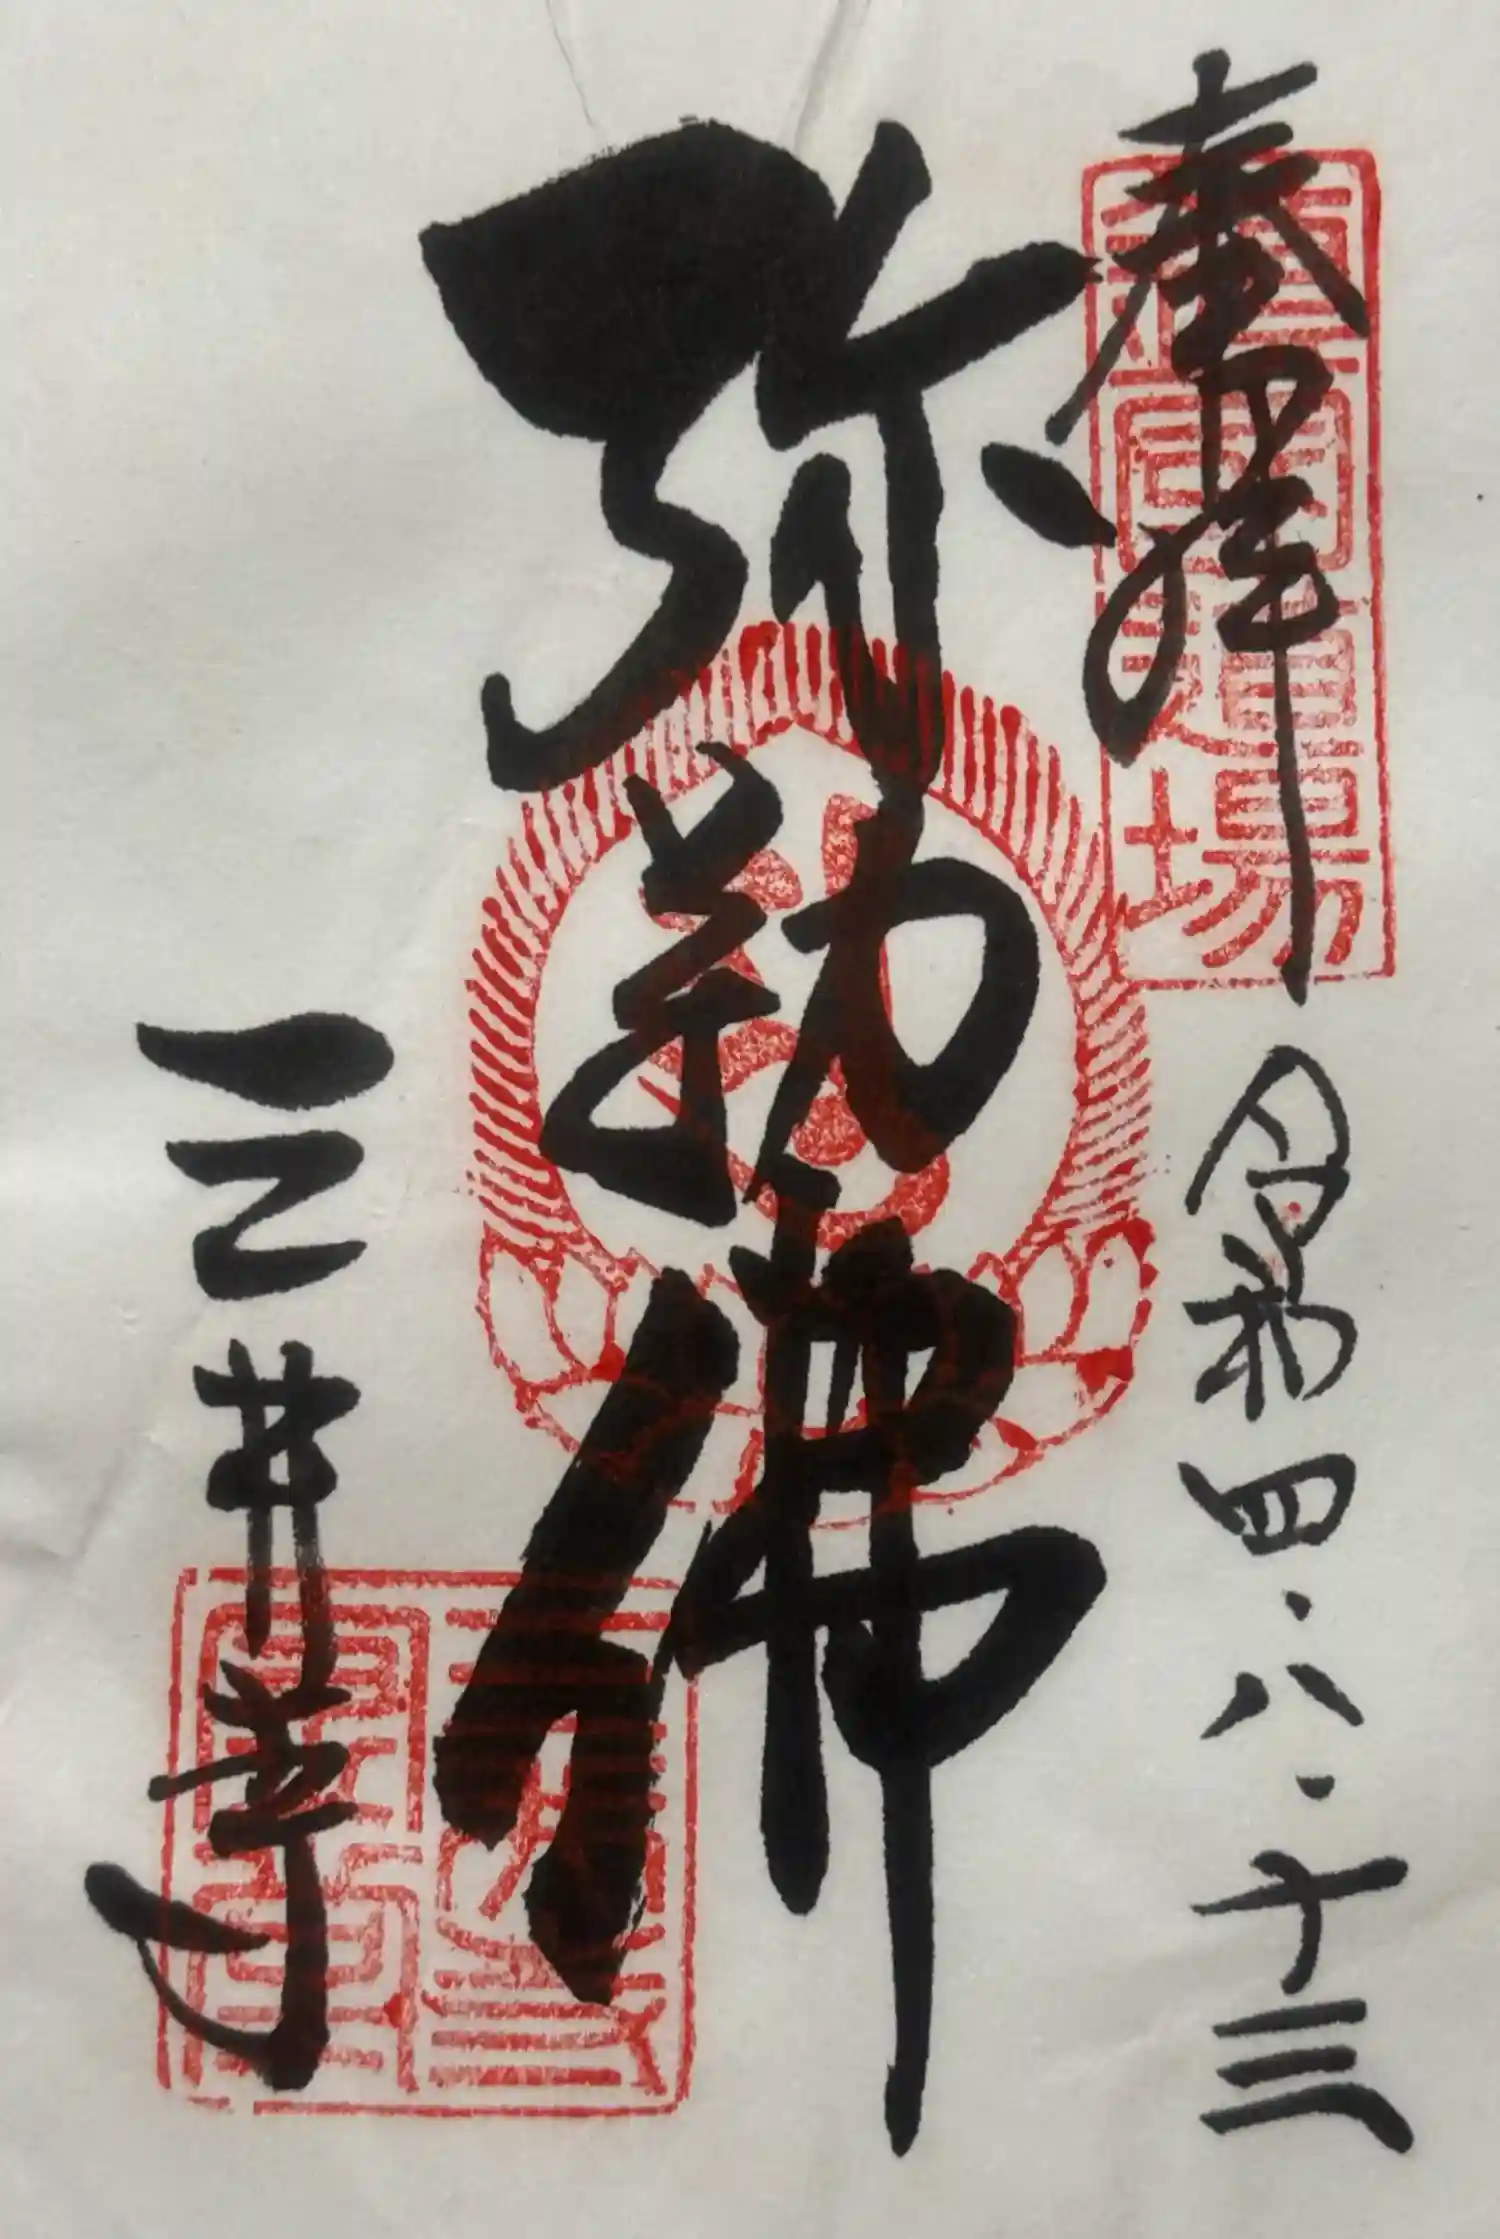 奉拝
道場
令和四・八・十三
弥勒佛
三井寺